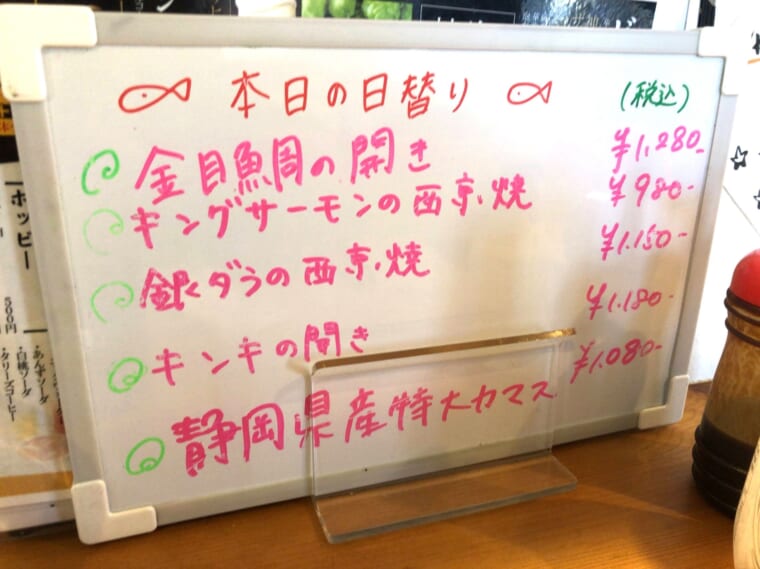 本日の日替り (税込)
金目鯛の開き ¥1,280-
キングサーモンの西京焼 ¥980-
銀ダラの西京焼 ¥1.150-
キンキの開き ¥1.180-
静岡県産特大カマス ¥1.080-
ホッピー
500円
・あんずソーダ
・白桃ソーダ
・タリーズコーヒー